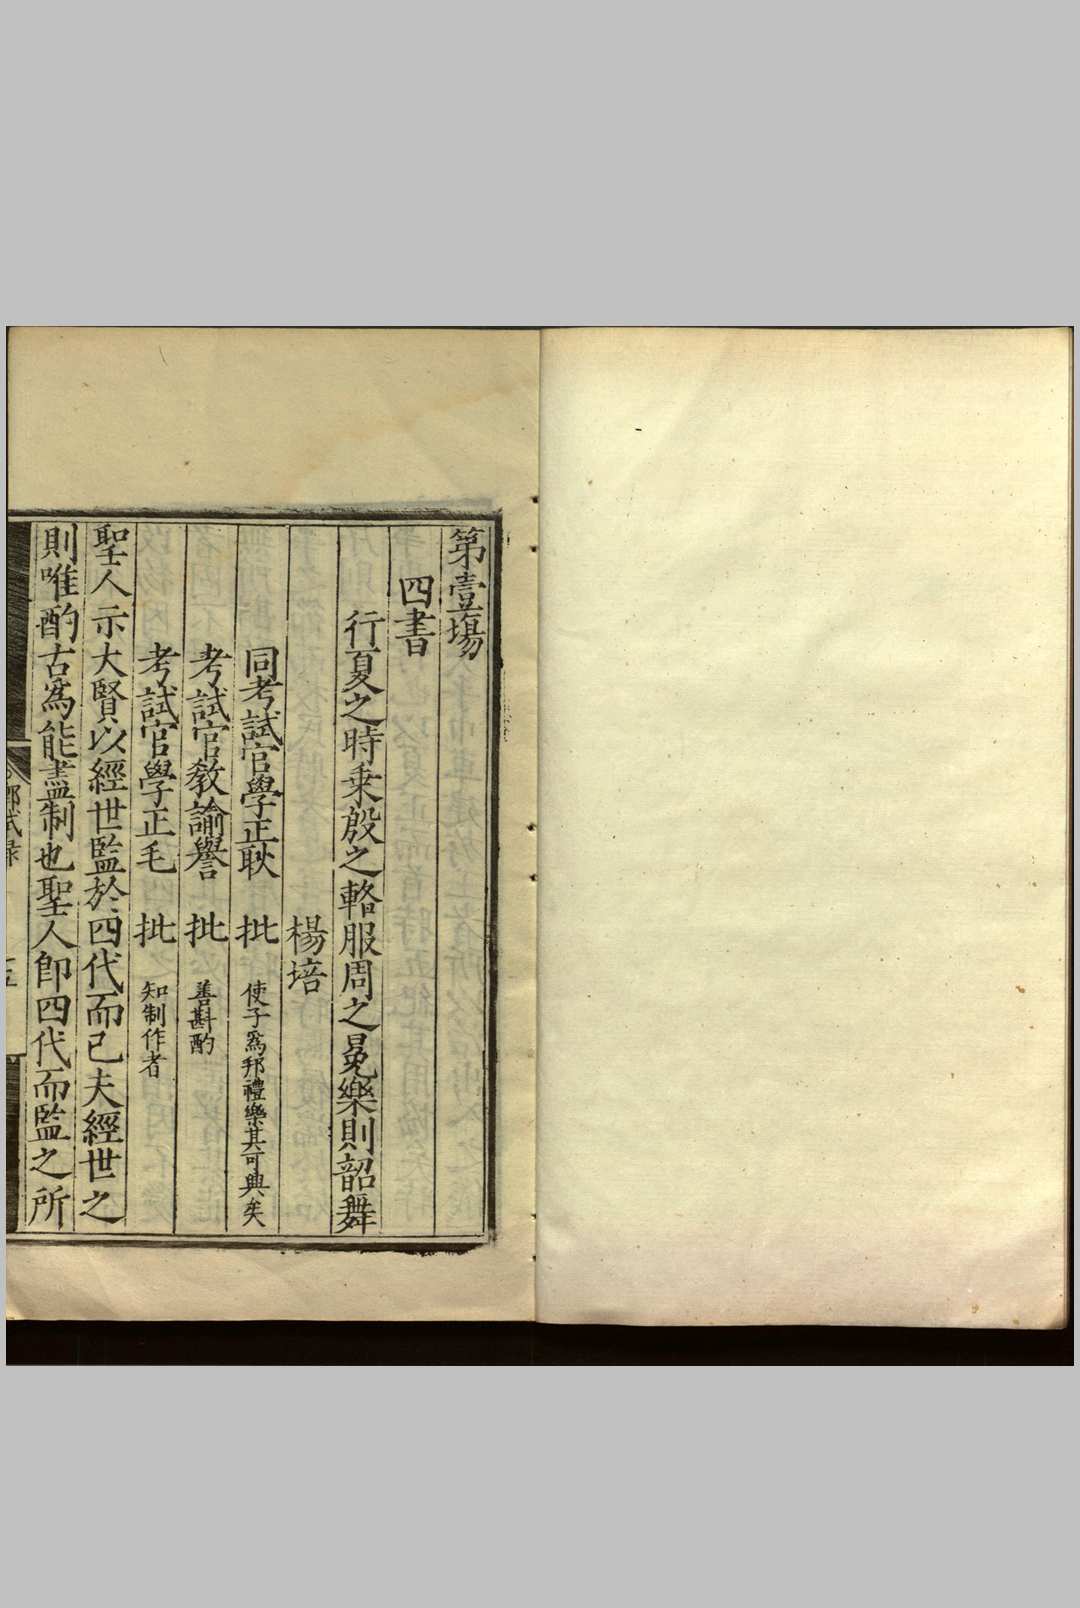 第壹場
四書
行夏之時乗殷之輅服周之冕樂則韶舞
楊培
同考試官學正耿 批 使子爲邦禮樂其可興矣
考試官教諭譽 批 善斟酌
考試官學正毛 批 知制作者
聖人示大賢以經世監於四代而已夫經世之
則唯酌古爲能盡制也聖人即四代而監之所
鄉試録